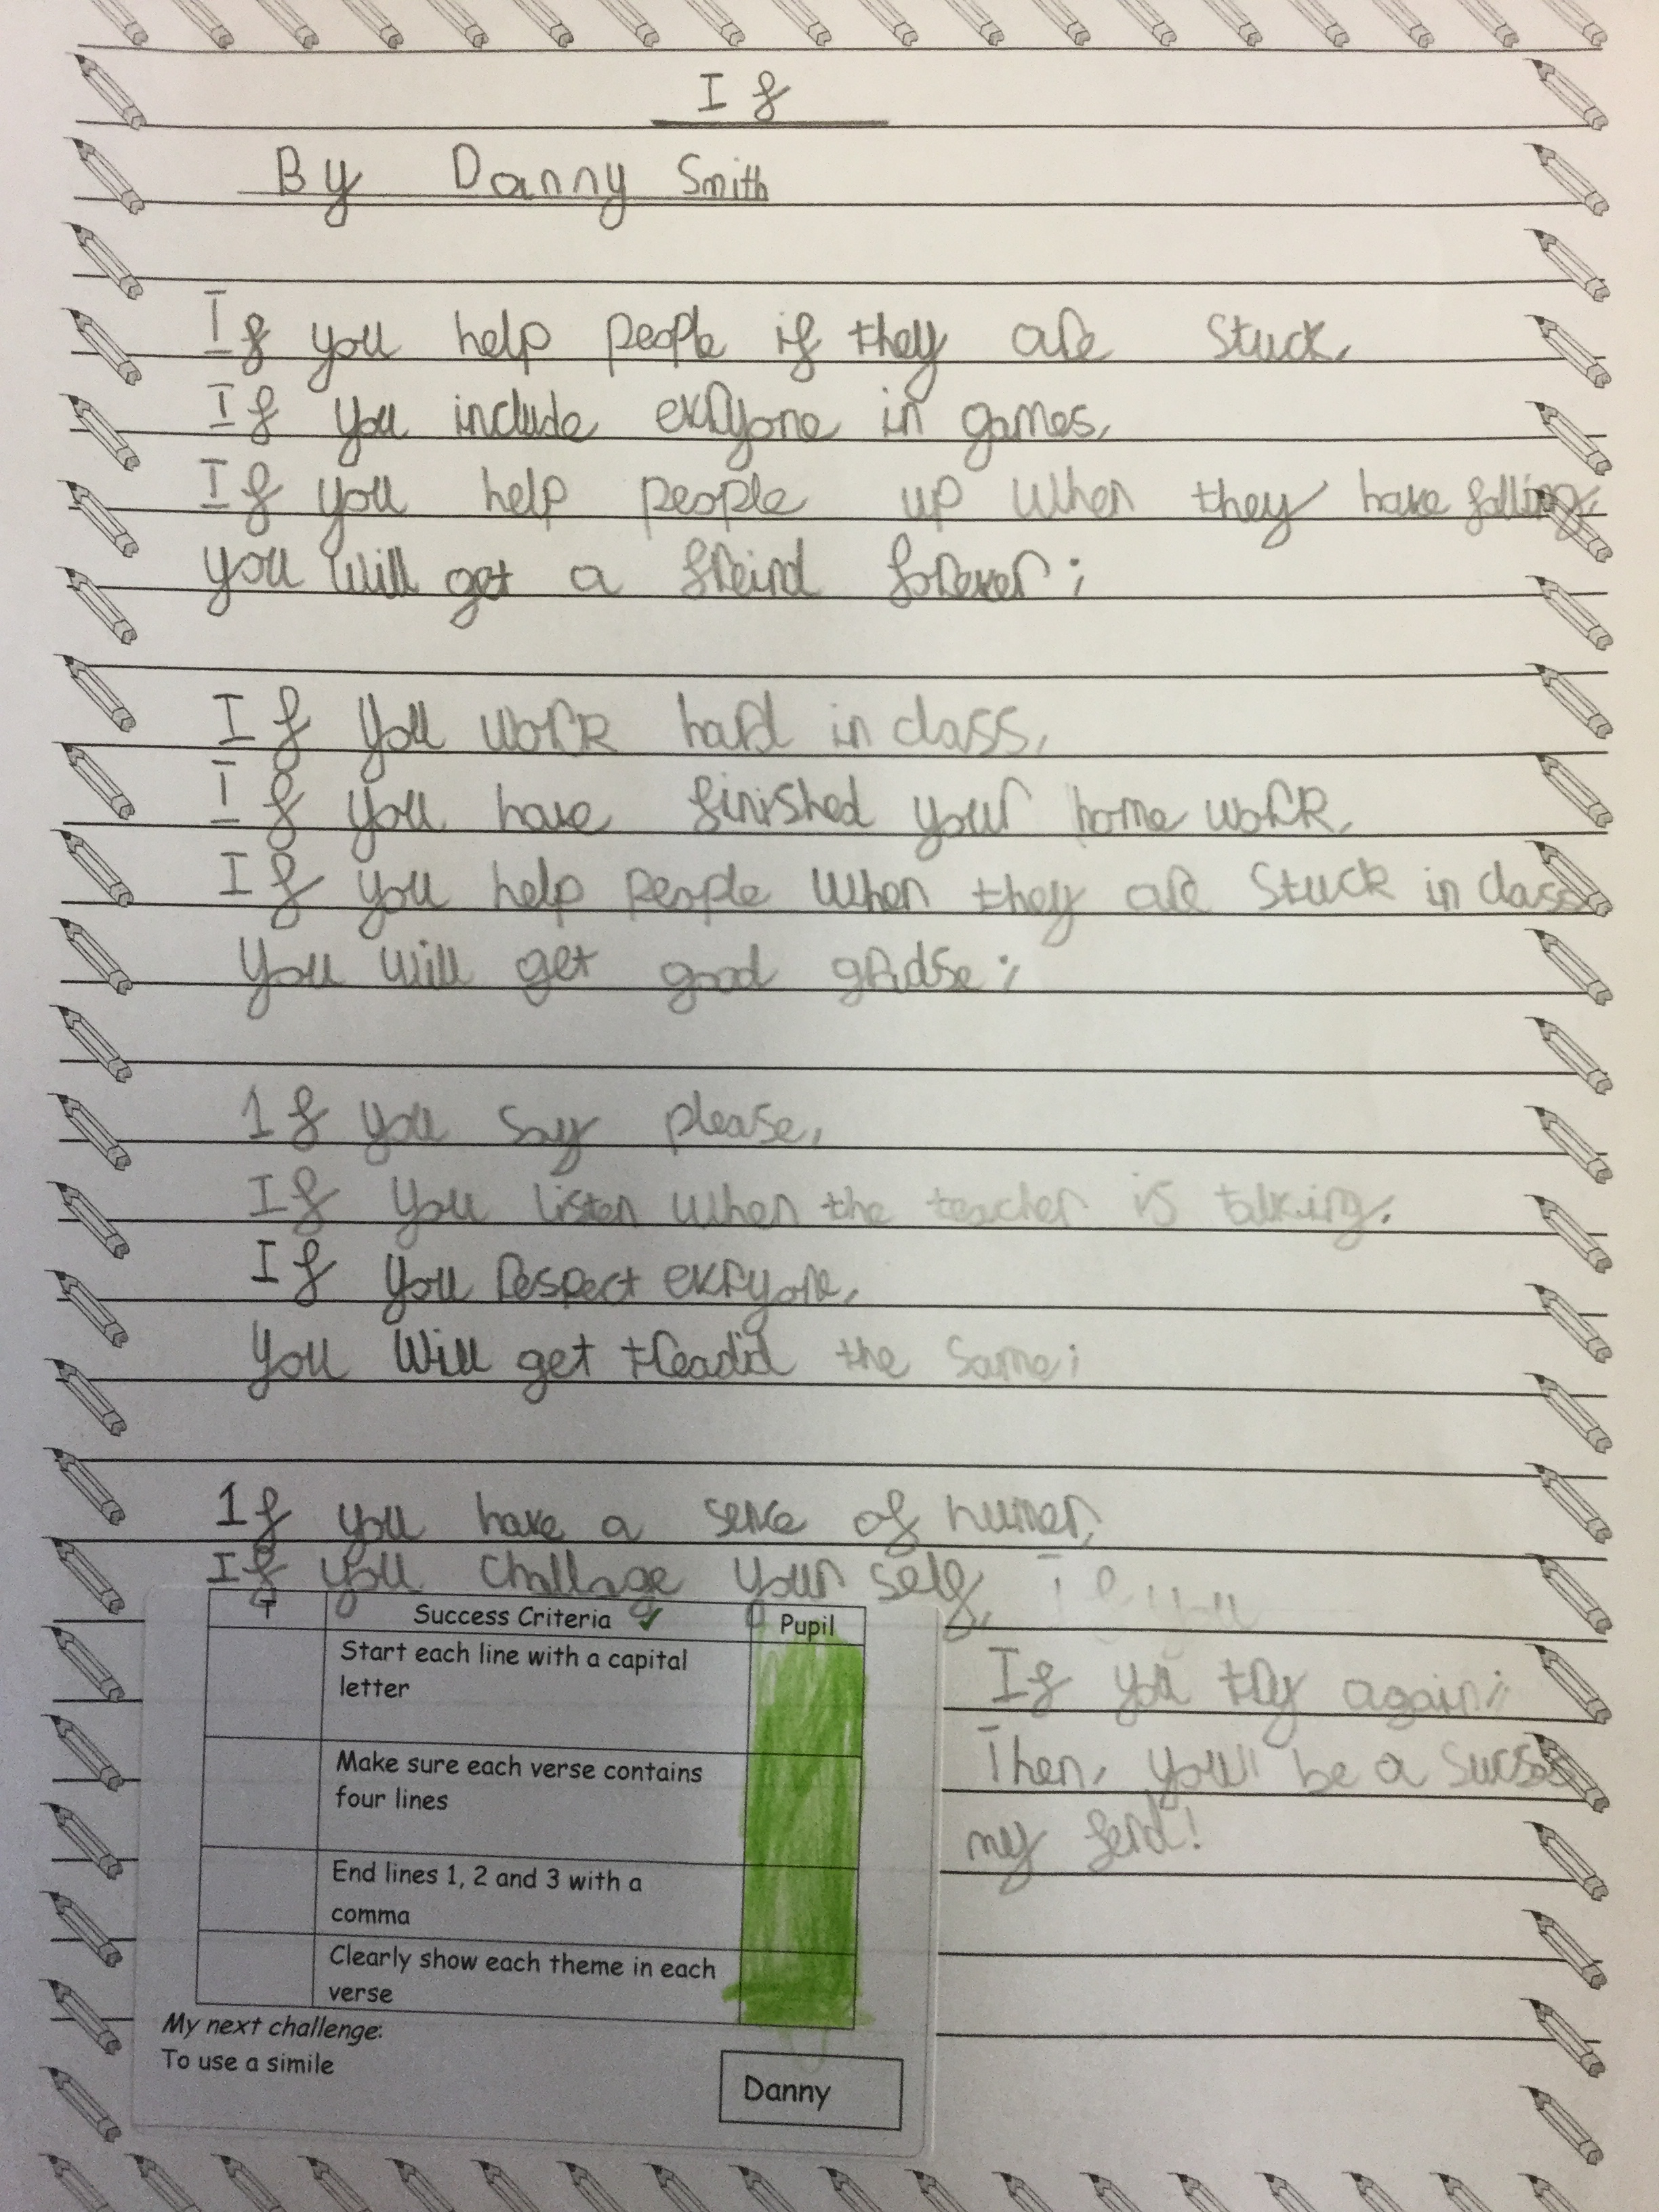 If
By Danny Smith
If you help people if they are stuck,
If you include evryone in games,
If you help people up when they have falling,
you will get a freind forever;
If you work hard in class,
If you have finished your home work,
If you help people when they are stuck in class
You will get good gradse;
If you say please,
If you listen when the teacher is talking,
If you respect evryone,
You will get treadid the same;
If you have a sence of humer,
If you challage your self,
If you try again;
Then, you'll be a
my ferd!
T Success Criteria ✓ Pupil
Start each line with a capital
letter
Make sure each verse contains
four lines
End lines 1, 2 and 3 with a
comma
Clearly show each theme in each
verse
My next challenge:
To use a simile
Danny